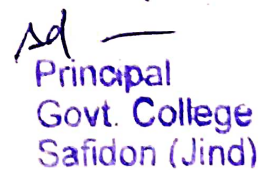 sd —
Principal
Govt. College
Safidon (Jind)